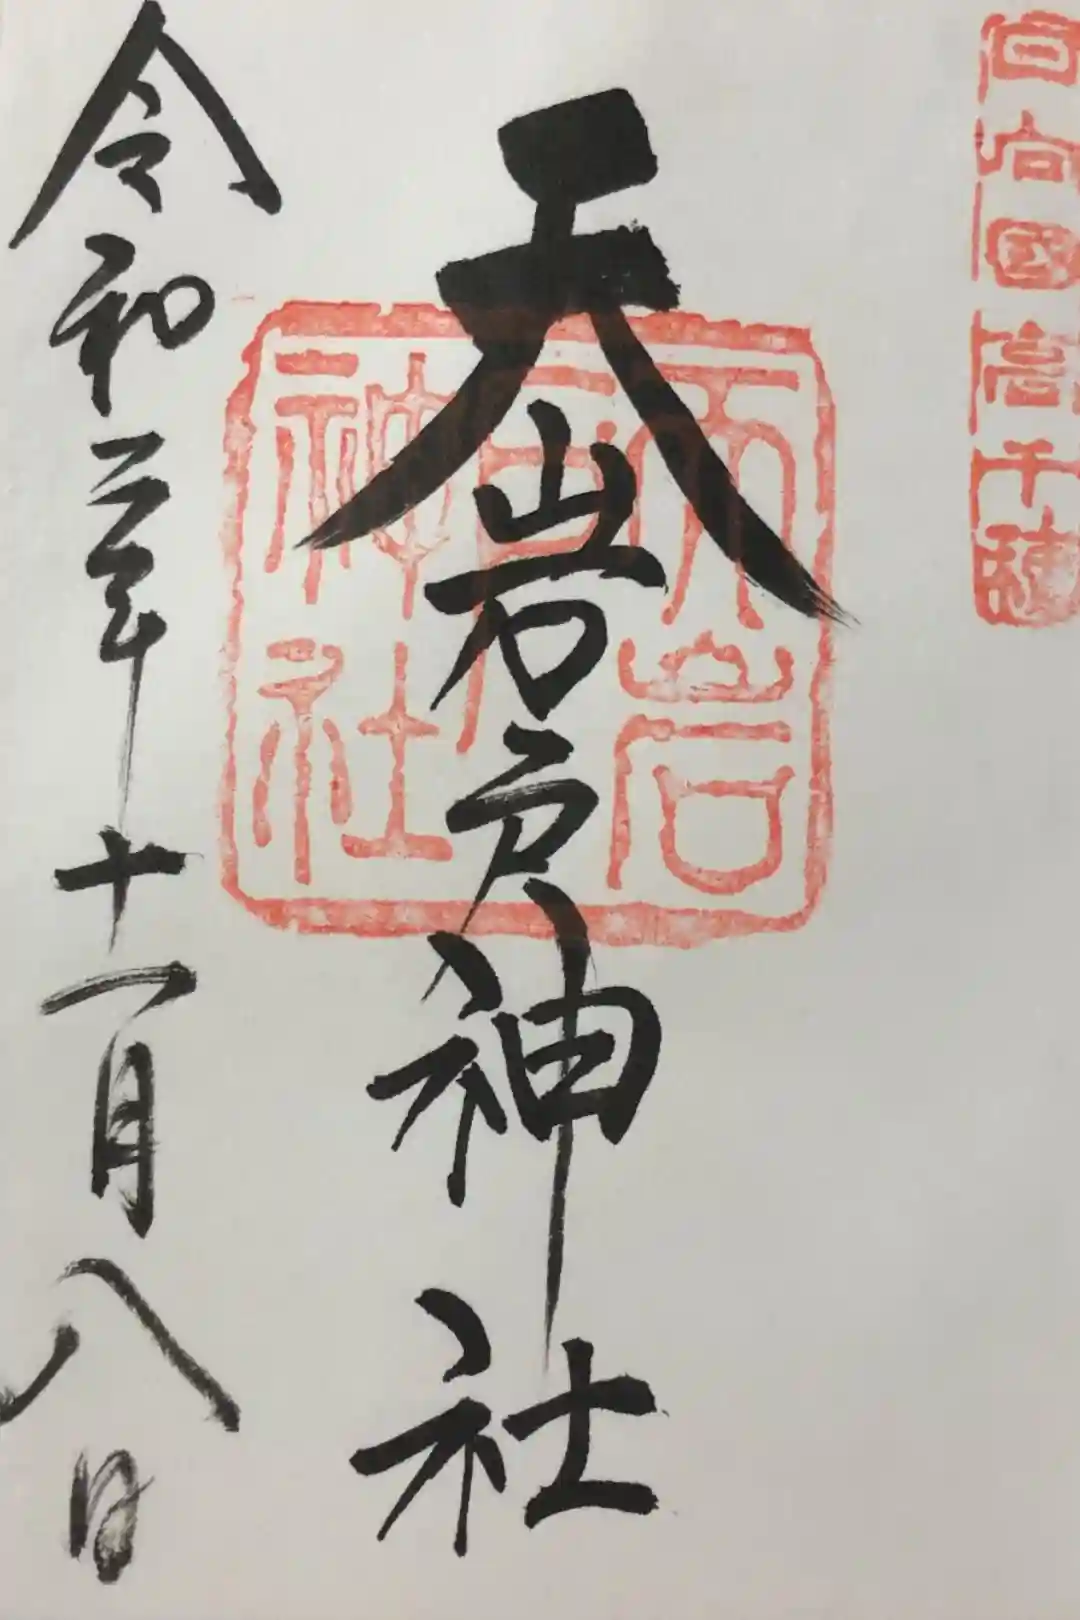 日向國高千穂
天岩戸神社
天岩戸神社
令和三年十一月八日